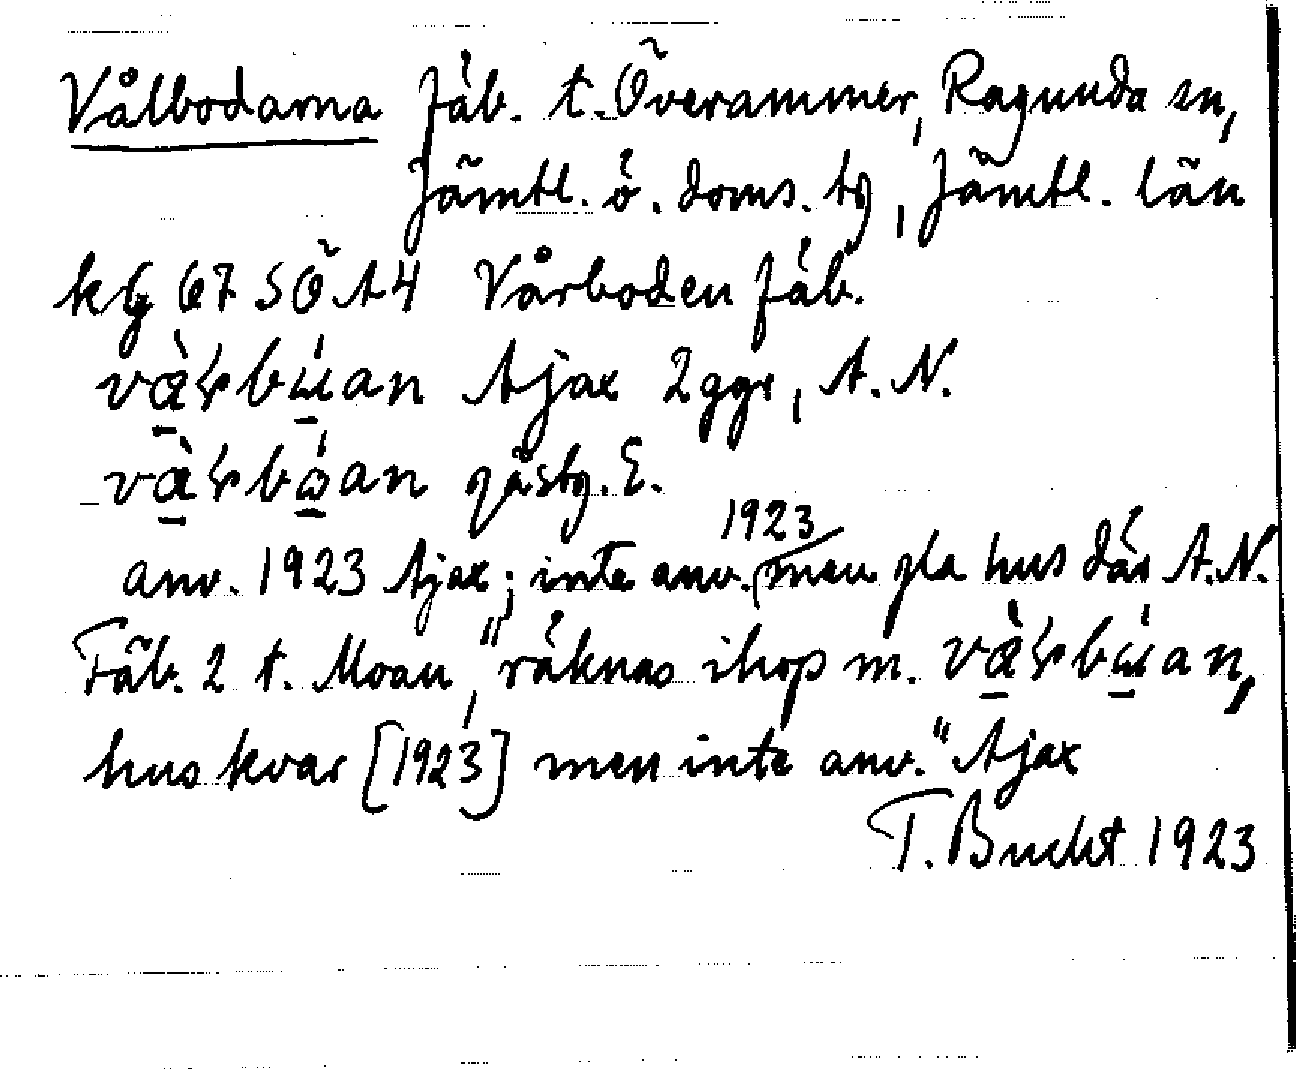 Vålbodarna fäb. t. Överammer, Ragunda sn,
Jämtl. ö. doms. tg, Jämtl. län
kg 67 SÖ A4 Vårboden fäb.
Ajax 2ggr, A. N.
gästg. E.
1923
anv. 1923 Ajax; inte anv. men gla hus där A.N.
Fäb. 2 t. Moan, "räknas ihop m.
hus kvar [1923] men inte anv." Ajax
T. Bucht 1923